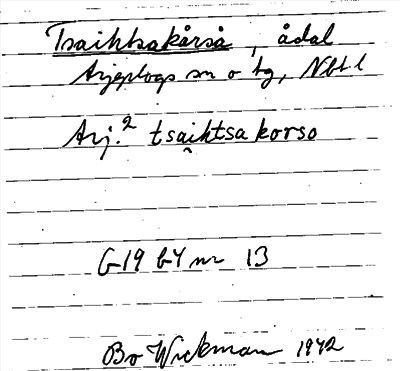 Tsaihtsakårså, ådal
Arjeplogs sn o tg, Nbt l
Arj.² tsai̮htsa korso
G19 b4 nr 13
Bo Wickman 1942